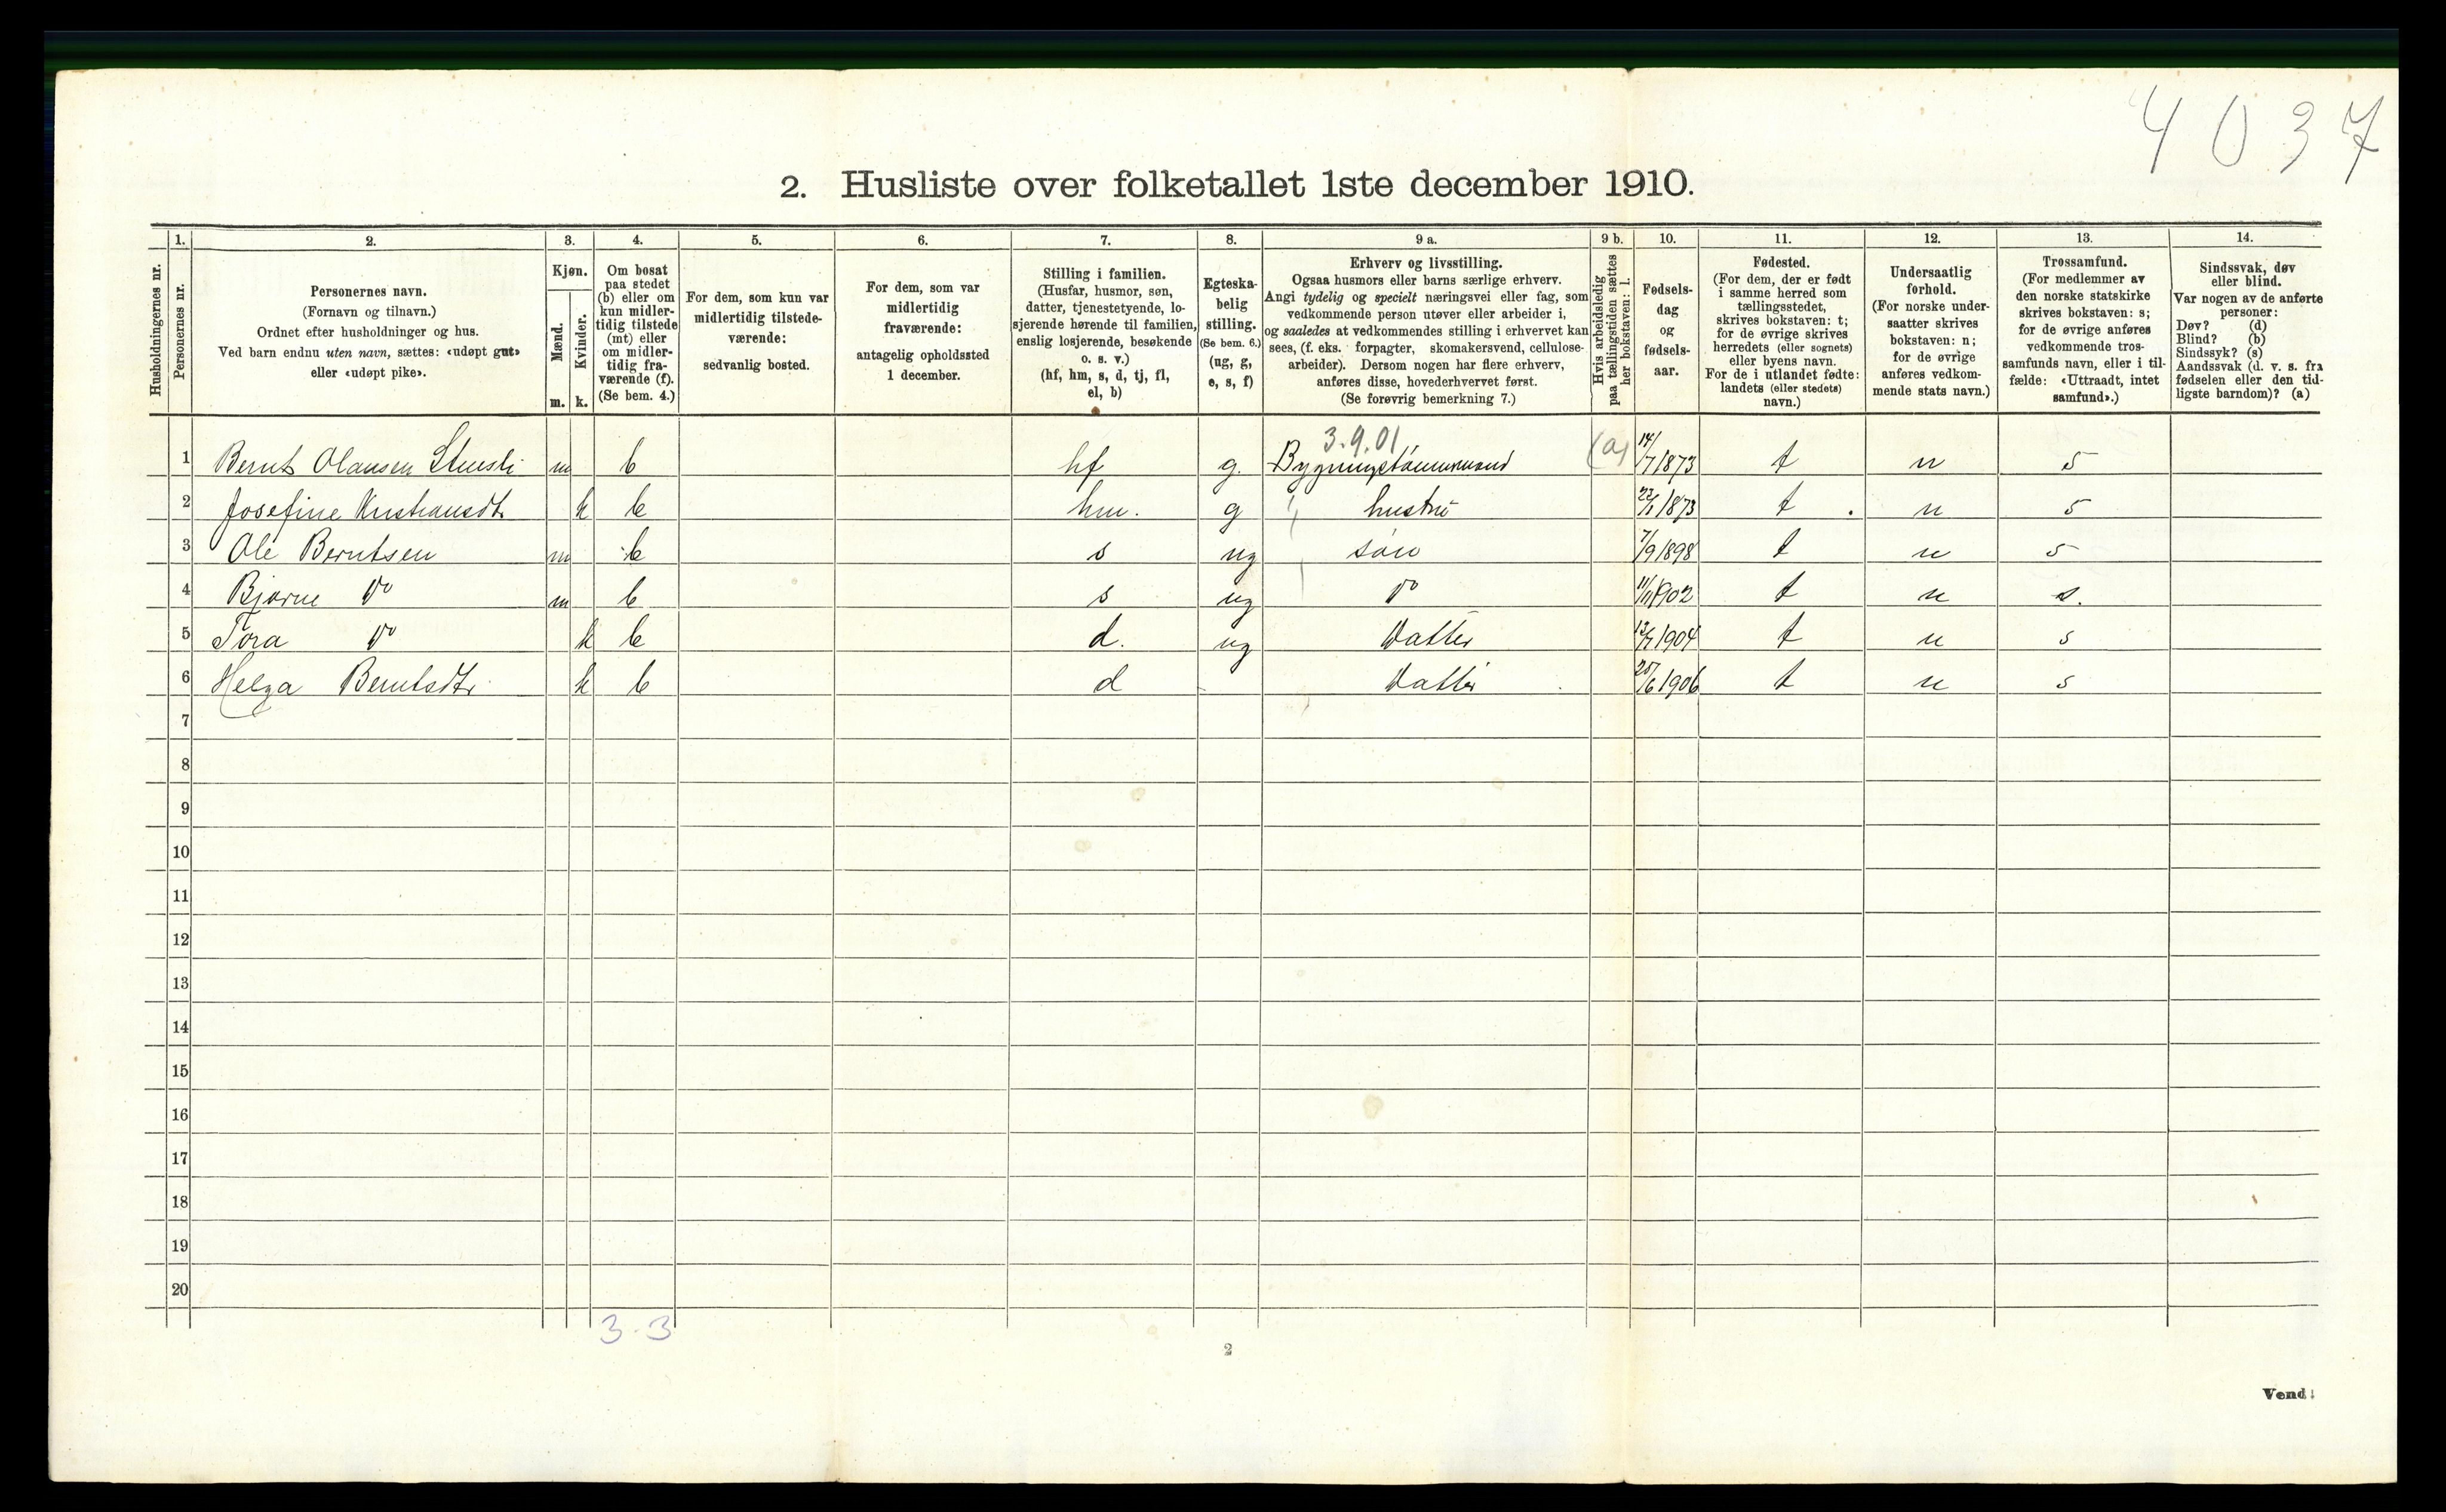 4037
2. Husliste over folketallet 1ste december 1910.
1. 2. 3. 4. 5. 6. 7. 8. 9 a. 9 b. 10. 11. 12. 13. 14.
Husholdningernes nr.
Personernes nr.
Personernes navn.
(Fornavn og tilnavn.)
Ordnet efter husholdninger og hus.
Ved barn endnu uten navn, sættes: «udøpt gut»
eller «udøpt pike».
Kjøn.
Mænd.
Kvinder.
m. k.
Om bosat
paa stedet
(b) eller om
kun midler-
tidig tilstede
(mt) eller
om midler-
tidig fra-
værende (f).
(Se bem. 4.)
For dem, som kun var
midlertidig tilstede-
værende:
sedvanlig bosted.
For dem, som var
midlertidig
fraværende:
antagelig opholdssted
1 december.
Stilling i familien.
(Husfar, husmor, søn,
datter, tjenestetyende, lo-
sjerende hørende til familien,
enslig losjerende, besøkende
o. s. v.)
(hf, hm, s, d, tj, fl,
el, b)
Egteska-
belig
stilling.
(Se bem. 6.)
(ug, g,
e, s, f)
Erhverv og livsstilling.
Ogsaa husmors eller barns særlige erhverv.
Angi tydelig og specielt næringsvei eller fag, som
vedkommende person utøver eller arbeider i,
og saaledes at vedkommendes stilling i erhvervet kan
sees, (f. eks. forpagter, skomakersvend, cellulose-
arbeider). Dersom nogen har flere erhverv,
anføres disse, hovederhvervet først.
(Se forøvrig bemerkning 7.)
Hvis arbeidsledig
paa tællingstiden sættes
her bokstaven: l.
Fødsels-
dag
og
fødsels-
aar.
Fødested.
(For dem, der er født
i samme herred som
tællingsstedet,
skrives bokstaven: t;
for de øvrige skrives
herredets (eller sognets)
eller byens navn.
For de i utlandet fødte:
landets (eller stedets)
navn.)
Undersaatlig
forhold.
(For norske under-
saatter skrives
bokstaven: n;
for de øvrige
anføres vedkom-
mende stats navn.)
Trossamfund.
(For medlemmer av
den norske statskirke
skrives bokstaven: s;
for de øvrige anføres
vedkommende tros-
samfunds navn, eller i til-
fælde: «Uttraadt, intet
samfund».)
Sindssvak, døv
eller blind.
Var nogen av de anførte
personer:
Døv? (d)
Blind? (b)
Sindssyk? (s)
Aandssvak (d. v. s. fra
fødselen eller den tid-
ligste barndom)? (a)
3.9.01
1 Bernt Olausen Stensli m b hf g. Bygningstømmermand (a) 14/7 1873 t n s
2 Josefine Kristiansdtr k b hm. g hustru 1873 t n s
3 Ole Berntsen m b s ug søn 7/9 1898 t n s
4 Bjarne do m b s ug do 11/11 1902 t n s.
5 Tora do k b d. ug Datter 1904 t n s
6 Helga Berntsdtr k b d - Datter 25/6 1906 t n s
7
8
9
10
11
12
13
14
15
16
17
18
19
20
3 . 3
2
Vend!